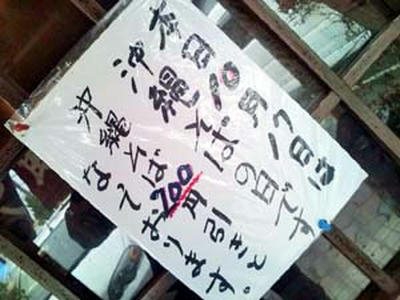 本日10月17日は
沖縄そばの日です
沖縄そば200円引きと
なております。